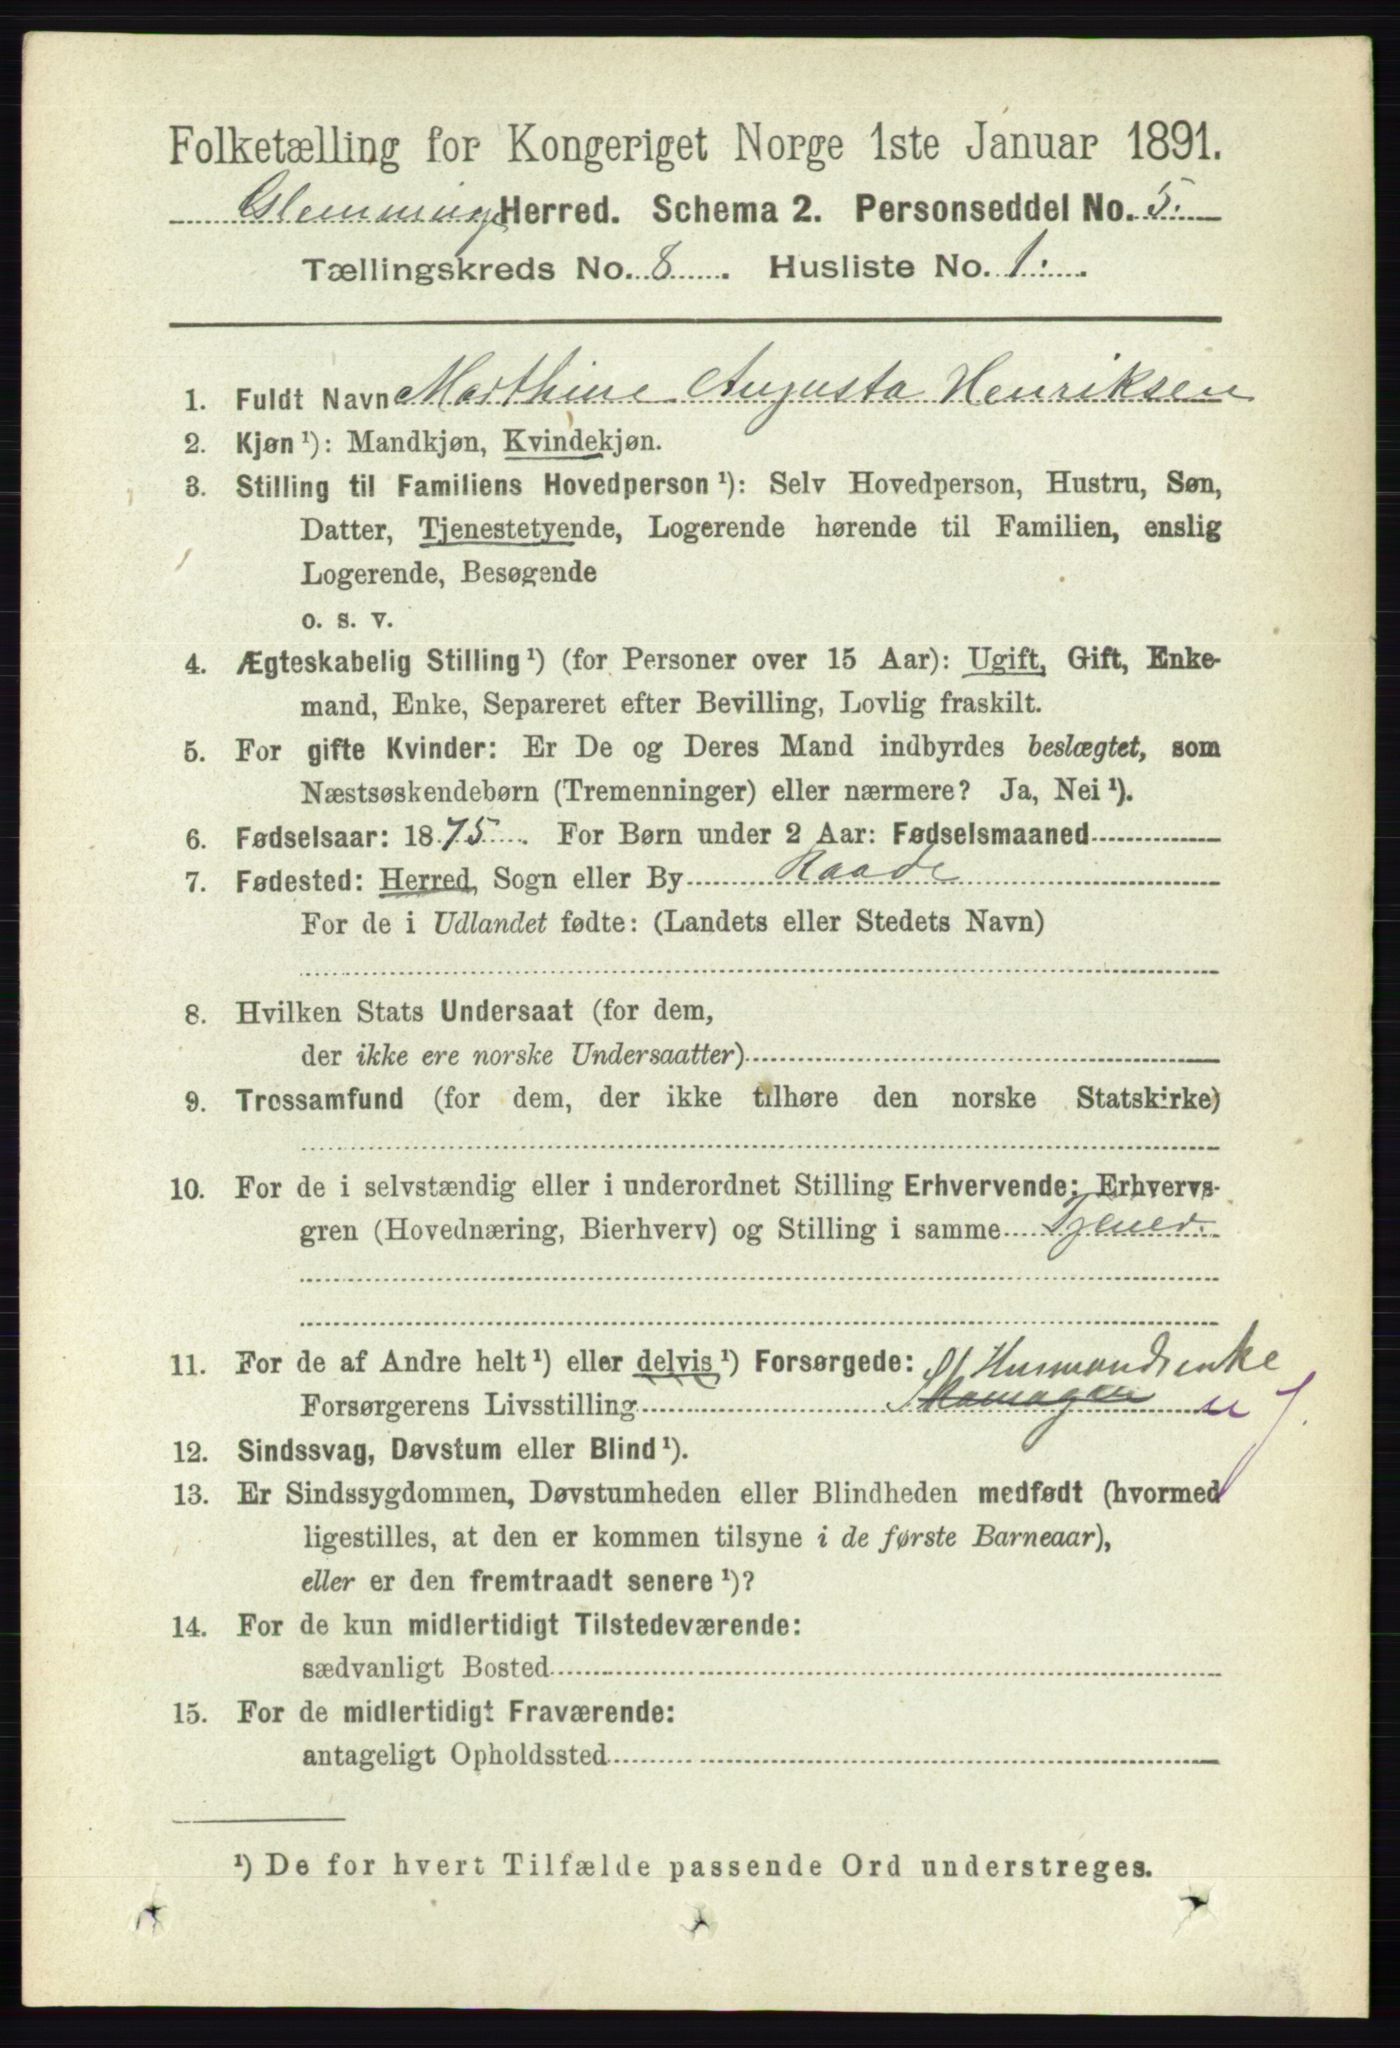 Folketælling for Kongeriget Norge 1ste Januar 1891.
Glemminge Herred. Schema 2. Personseddel No. 5.
Tællingskreds No. 8. Husliste No. 1.
1. Fuldt Navn Marthine Augusta Henriksen
2. Kjøn ¹): Mandkjøn, Kvindekjøn.
3. Stilling til Familiens Hovedperson ¹): Selv Hovedperson, Hustru, Søn,
Datter, Tjenestetyende, Logerende hørende til Familien, enslig
Logerende, Besøgende
o. s. v.
4. Ægteskabelig Stilling ¹) (for Personer over 15 Aar): Ugift, Gift, Enke-
mand, Enke, Separeret efter Bevilling, Lovlig fraskilt.
5. For gifte Kvinder: Er De og Deres Mand indbyrdes beslægtet, som
Næstsøskendebørn (Tremenninger) eller nærmere? Ja, Nei ¹).
6. Fødselsaar: 1875. For Børn under 2 Aar: Fødselsmaaned
7. Fødested: Herred, Sogn eller By Raade
For de i Udlandet fødte: (Landets eller Stedets Navn)
8. Hvilken Stats Undersaat (for dem,
der ikke ere norske Undersaatter)
9. Trossamfund (for dem, der ikke tilhøre den norske Statskirke)
10. For de i selvstændig eller i underordnet Stilling Erhvervende: Erhvervs-
gren (Hovednæring, Bierhverv) og Stilling i samme
11. For de af Andre helt ¹) eller delvis ¹) Forsørgede: Husmandsenke
Forsørgerens Livsstilling
12. Sindssvag, Døvstum eller Blind ¹).
13. Er Sindssygdommen, Døvstumheden eller Blindheden medfødt (hvormed
ligestilles, at den er kommen tilsyne i de første Barneaar),
eller er den fremtraadt senere ¹)?
14. For de kun midlertidigt Tilstedeværende:
sædvanligt Bosted
15. For de midlertidigt Fraværende:
antageligt Opholdssted
¹) De for hvert Tilfælde passende Ord understreges.